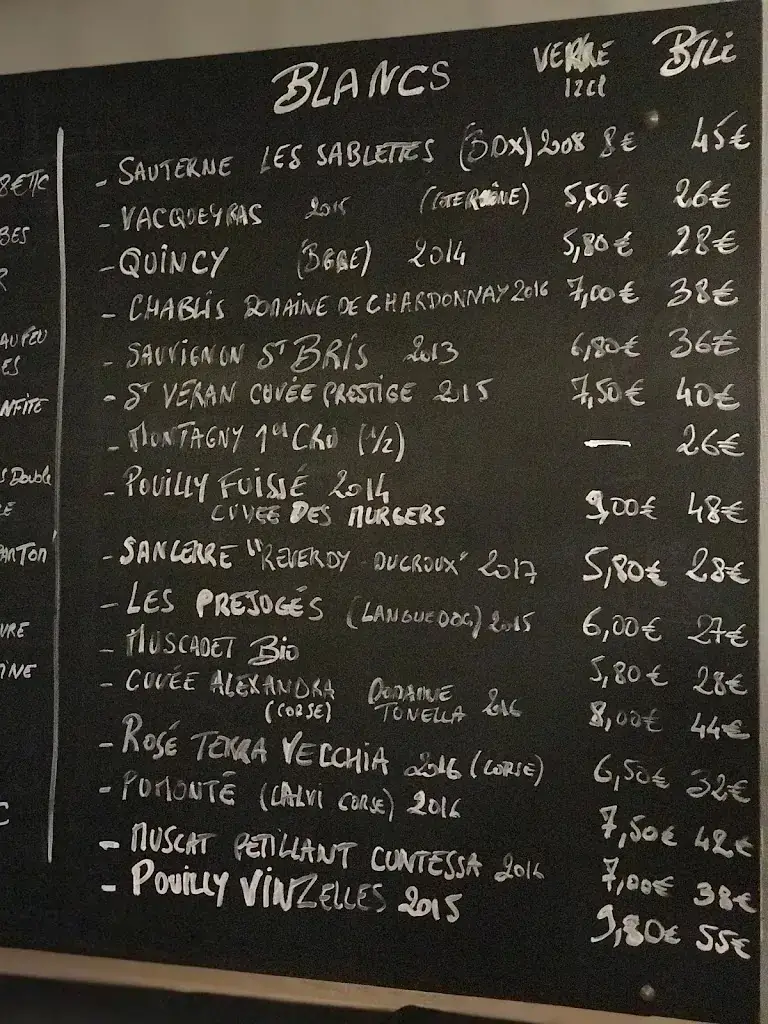 BLANCS VERRE BTLL
12cl
- SAUTERNE LES SABLETTES (BDX) 2008 8€ 45€
- VACQUEYRAS 2015 5,50€ 26€
- QUINCY 2014 5,80€ 28€
- CHABLIS DOMAINE DE CHARDONNAY 2016 7,00€ 38€
- SAUVIGNON ST BRIS 2013 6,80€ 36€
- ST VERAN CUVÉE PRESTIGE 2015 7,50€ 40€
- MONTAGNY 1er CRU (1/2) — 26€
- POUILLY FUISSÉ 2014
CUVEE DES MURGERS 9,00€ 48€
- SANCERRE "REVERDY-DUCROUX" 2017 5,80€ 28€
- LES PREJUGÉS (LANGUEDOC) 2015 6,00€ 27€
- MUSCADET Bio 5,80€ 28€
- CUVÉE ALEXANDRA DOMAINE
(CORSE) TONELLA 2016 8,00€ 44€
- ROSÉ TERRA VECCHIA 2016 (CORSE) 6,50€ 32€
- PUMONTE (CALVI CORSE) 2016 7,50€ 42€
- MUSCAT PETILLANT CUNTESSA 2016 7,00€ 38€
- POUILLY VINZELLES 2015 9,80€ 55€
8€TTC
BES
R
AU FEU
ES
NFITE
S Double
RE
DANTON
URE
INE
C